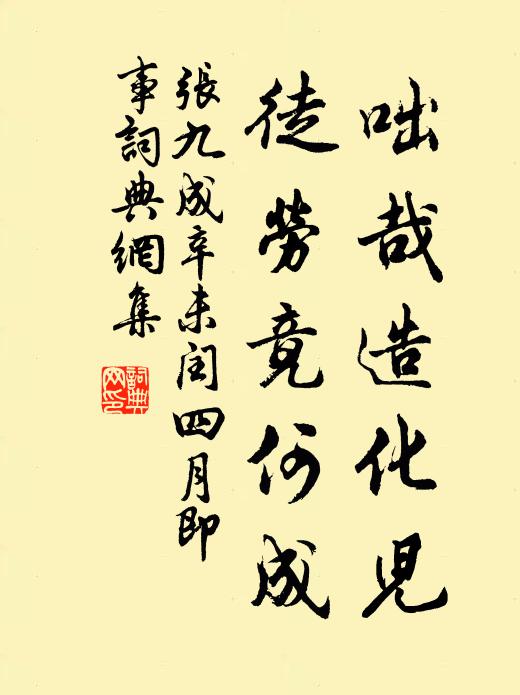 咄哉造化児
徒勞竟何成
張九成辛未閏四月即
事詞典網集
詞典
网印